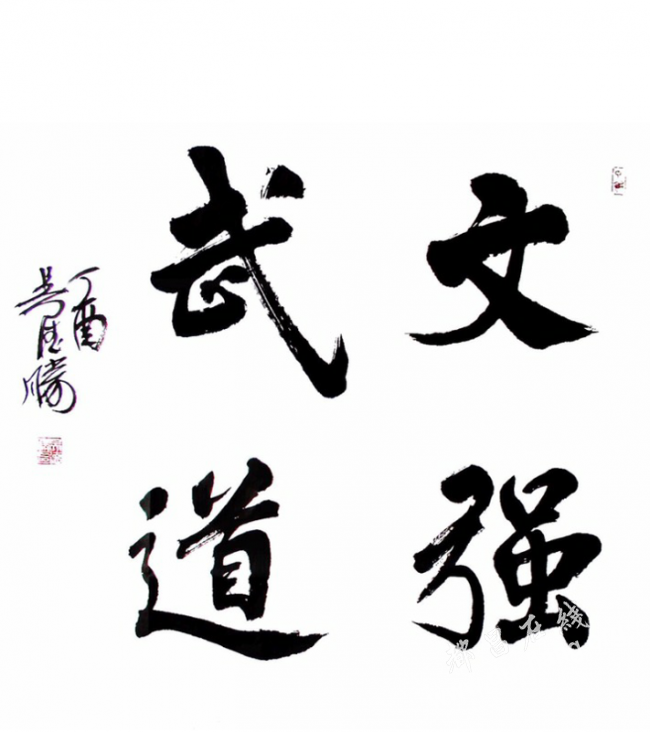 文强
武道
丁酉